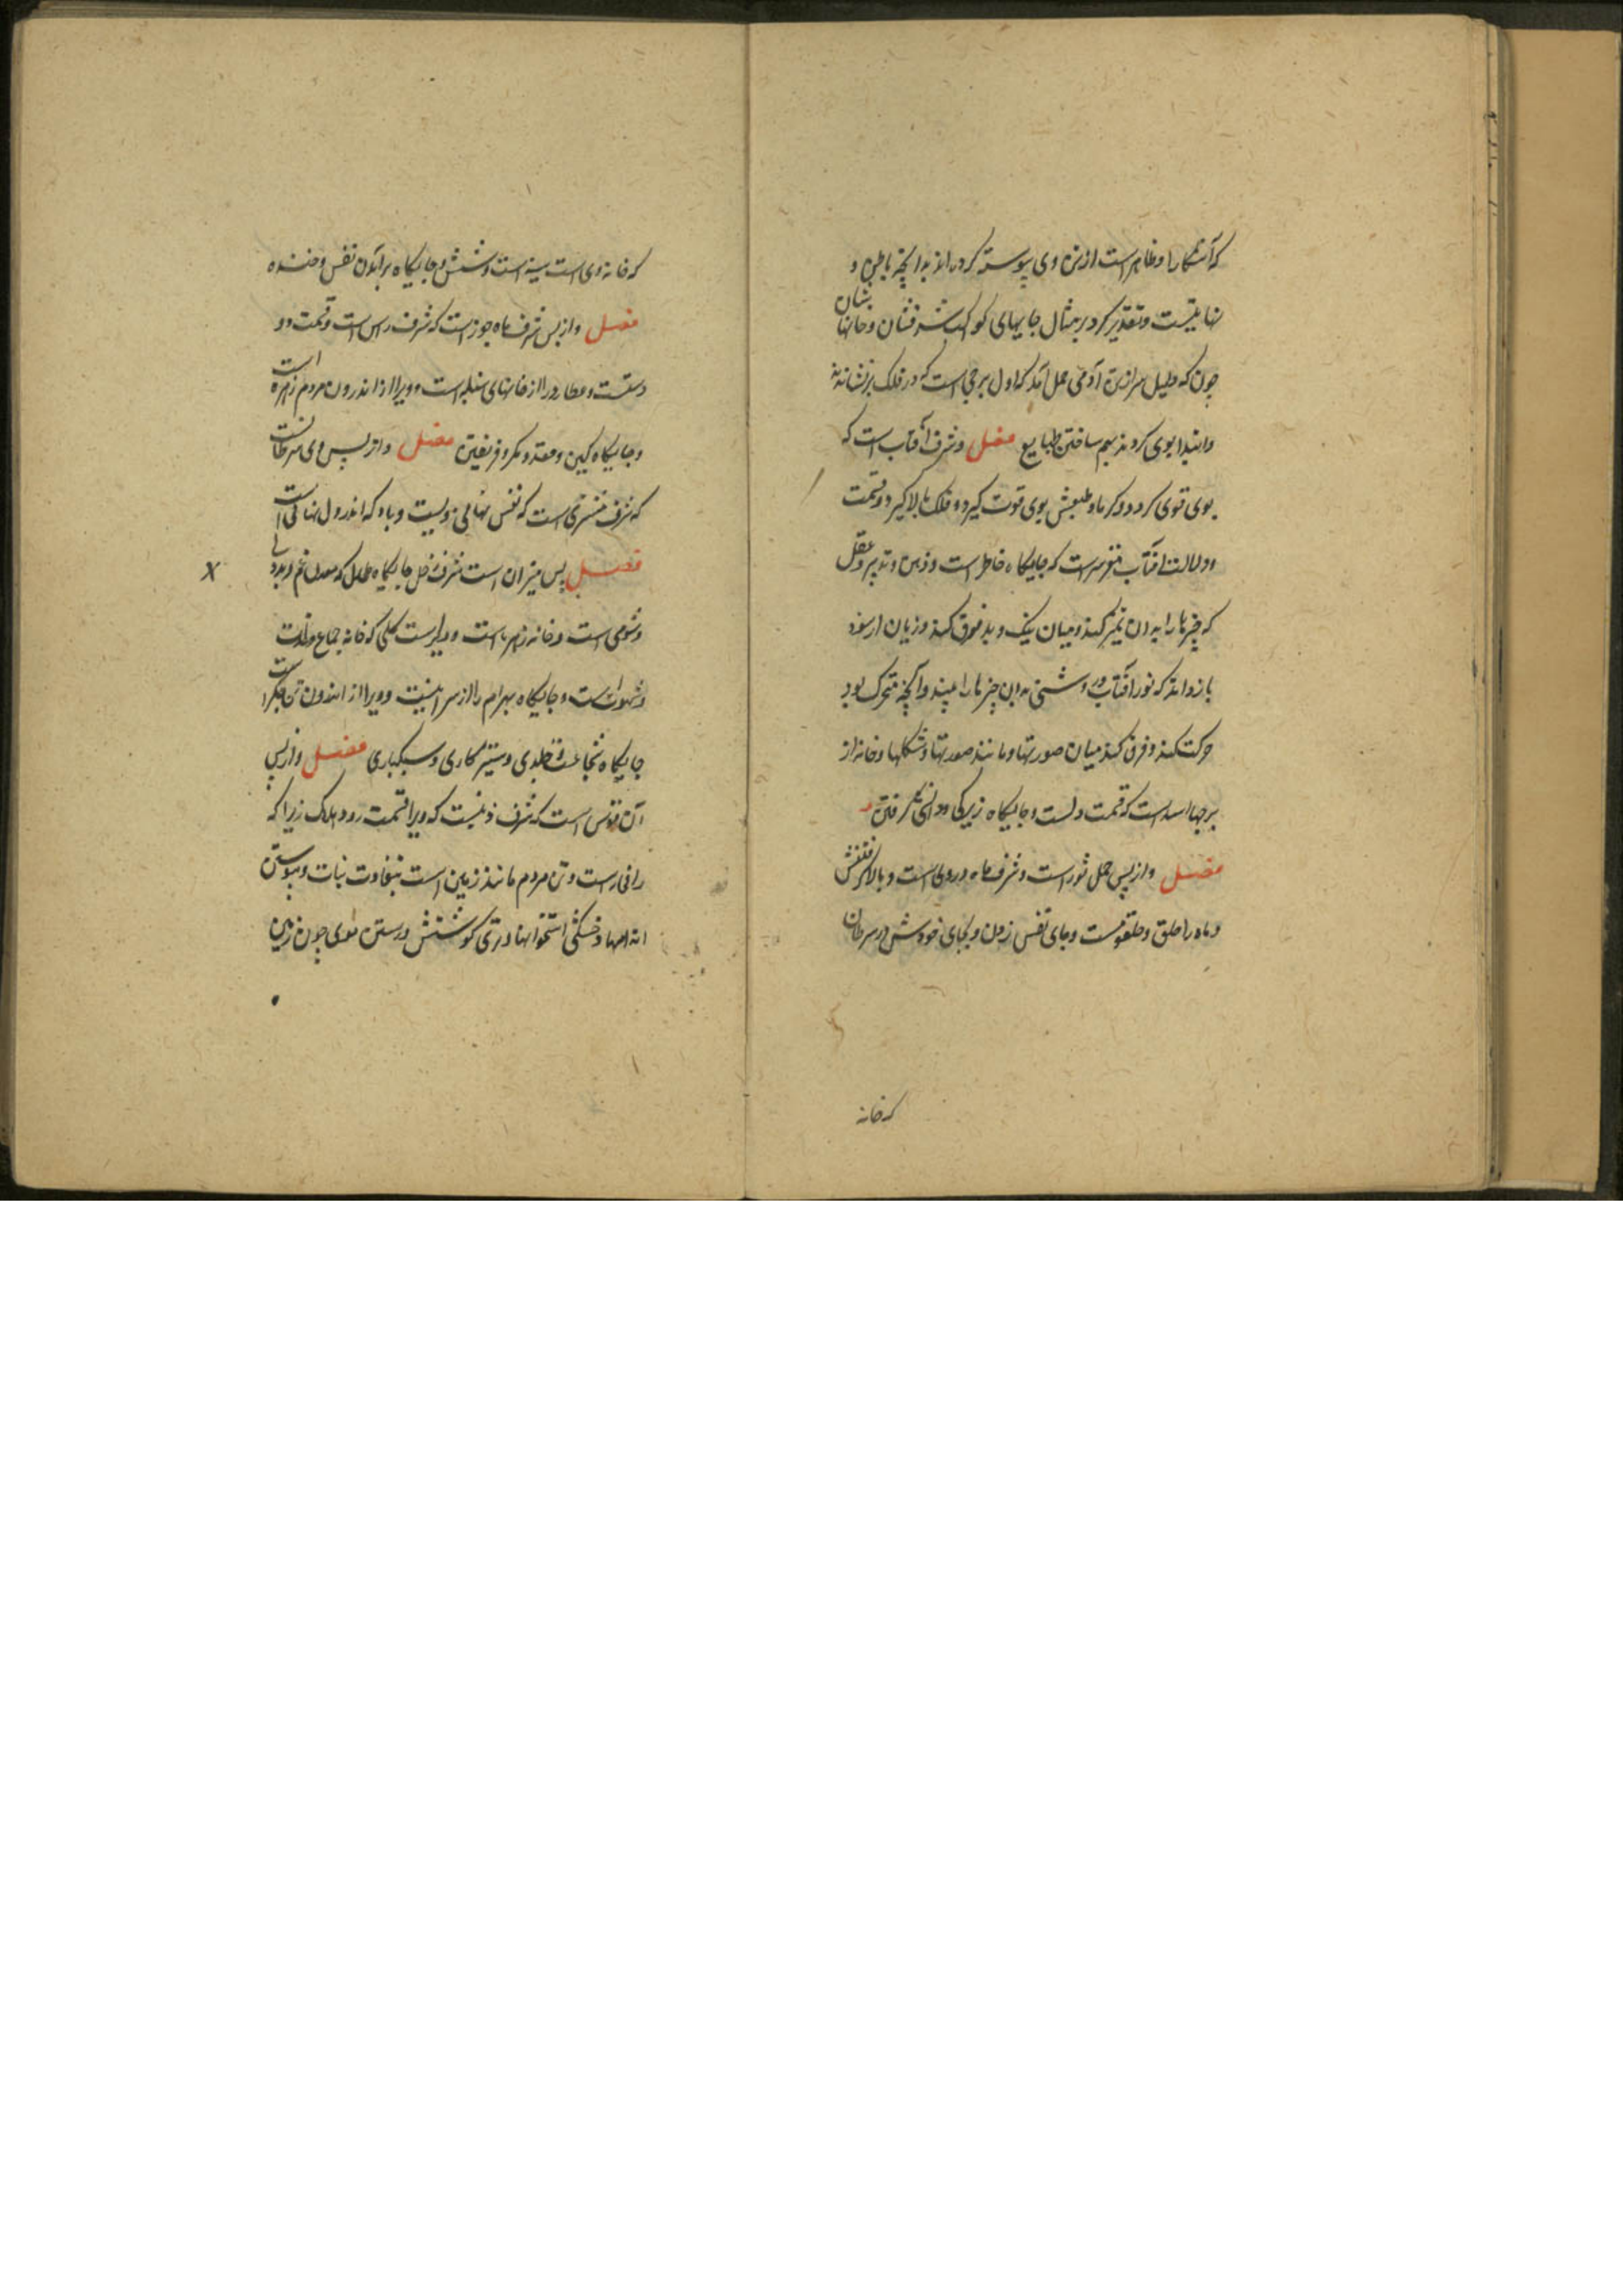 که آشکارا و ظاهر است از تن وی پیوسته کرده اند بدانچه باطن و
نهانیست و تقدیر کرد بر مثال جایهای کواکب شرفشان و خانهاشان
چون که دلیل سر از تن آدمی حمل آمد که اول برجی است که در فلک بر نشانه‌اند
و ابتدا بوی کردند بهم ساختن طبایع فصل و شرف آفتاب است که
بوی قوی کردد و کرما و طبعش بوی قوت کیرد و فلک بالا کیرد و قسمت
و دلالت آفتاب مغز سر است که جایکاه خاطر است و ذهن و تدبیر و عقل
که چیزها را بدان تمیز کند و میان نیک و بد فرق کند و زیان از سود
باز داند که نور آفتاب و روشنی بدان چیزها را بیند و آنچه متحرک بود
حرکت کند و فرق کند میان صورتها و مانند صورتها و شکلها و خانه از
برجها اسد است که قسمت دلست و جایکاه زیرکی و دانش کرفتن
فصل و از پس حمل ثور است و شرف ماه در وی است و بالا کرفتنش
و ماه را حلق و حلقومست و جای نفس زدن و بجای خودش در سرطان
که خانه
که خانه وی است سینه است و شش و جایکاه برآمدن نفس و خنده
فصل و از پس شرف ماه جوزاست که شرف راس است و قسمت دو
دستست و عطارد را از خانهای سنبله است و ویرا از اندرون مردم زهره است
و جایکاه کین و حقد و مکر و فریفتن فصل و از پس وی سرطانست
که شرف مشتری است که نفس نهانی ویست و باد که اندر دل نهانی است
فصل پس میزان است شرف زحل جایکاه طحال که معدن غم و بددلی
و شومی است و خانه زهره است و ویراست کلی که خانه جماع و لذت
و شهوتست و جایکاه بهرام را از سر بینیست و ویرا از اندرون تن جکر است
جایکاه شجاعت و جلدی و ستیزکاری و سبکباری فصل و از پس
آن قوس است که شرف ذنبست که ویرا قسمت رود هلاک زیرا که
را فی رست و تن مردم مانند زمین است بتفاوت نبات و پیوستن
اندامها و خشکی استخوانها و تری کوشتش و رستن موی چون زمین